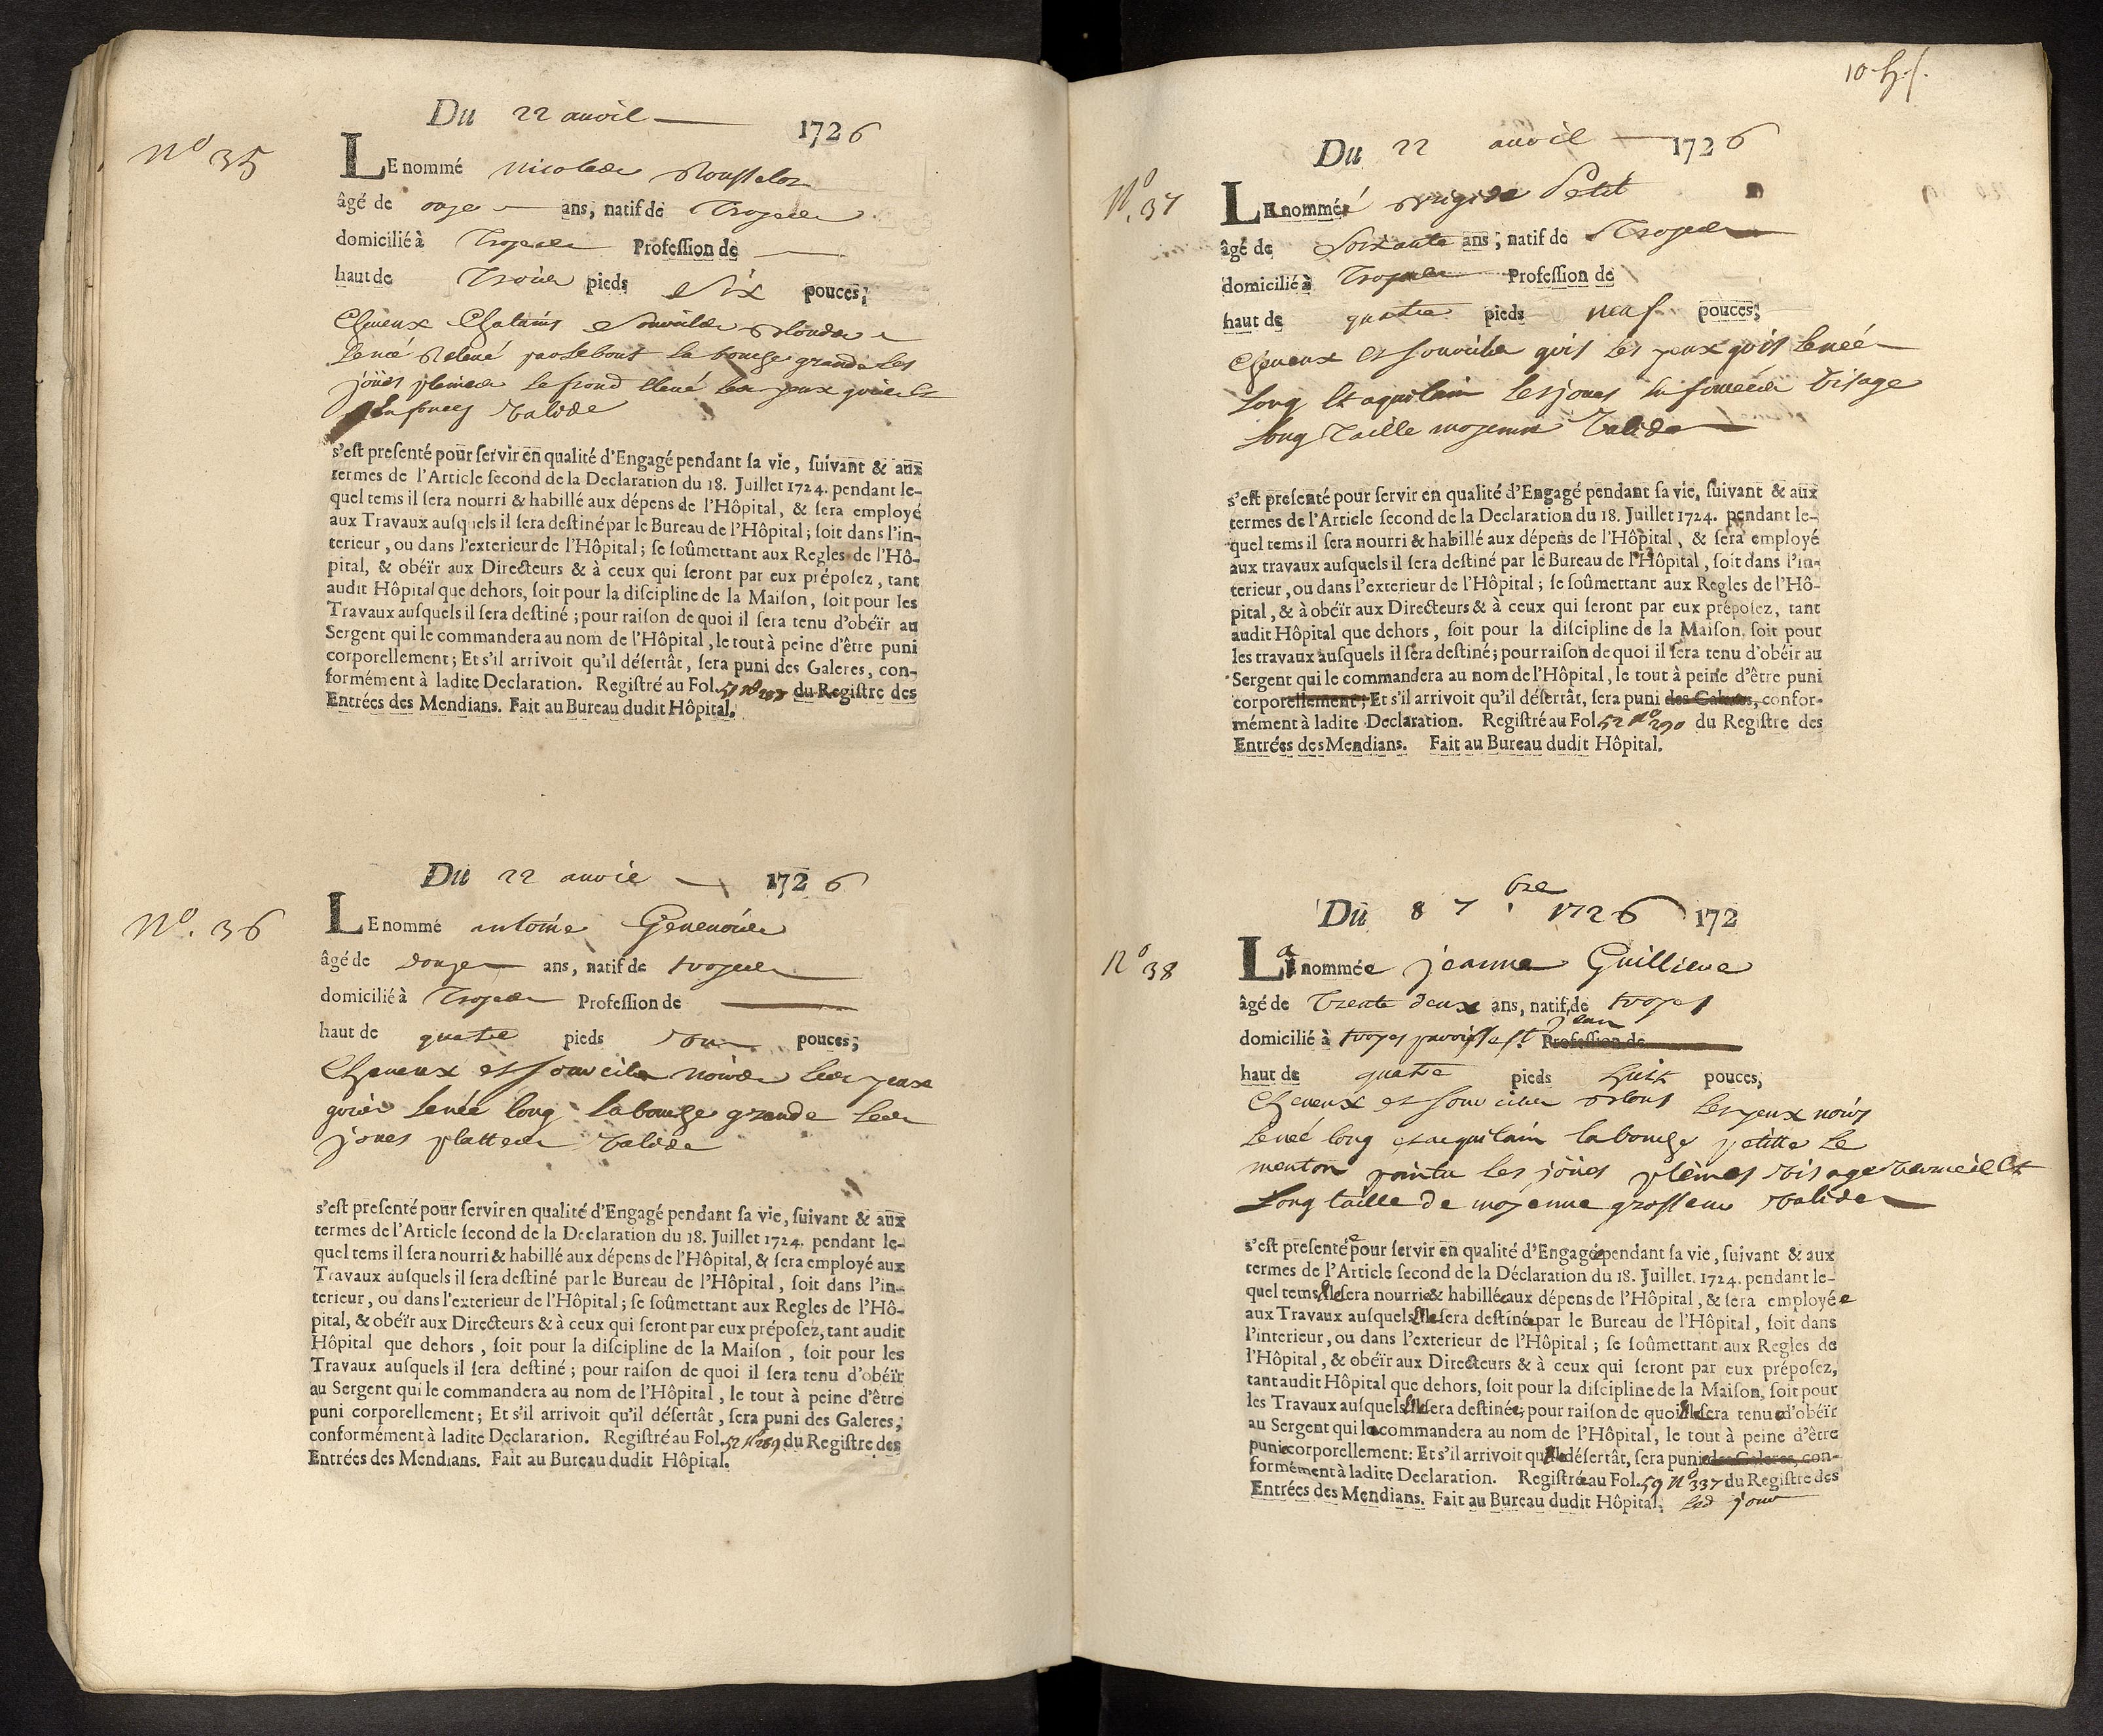 Du 22 avril 1726
N° 35
LE nommé Nicolas Rousselot
âgé de onze ans, natif de Troyes
domicilié à Troyes Profession de
haut de Trois pieds Six pouces;
Cheveux Chatains Sourcils blonds
le né Relevé par le bout la bouche grande les
joües pleines le frond élevé les yeux gris et
enfoncez Valide
s'est presenté pour servir en qualité d'Engagé pendant sa vie, suivant & aux
termes de l'Article second de la Declaration du 18. Juillet 1724. pendant le-
quel tems il sera nourri & habillé aux dépens de l'Hôpital, & sera employé
aux Travaux ausquels il sera destiné par le Bureau de l'Hôpital; soit dans l'in-
terieur, ou dans l'exterieur de l'Hôpital; se soûmettant aux Regles de l'Hô-
pital, & obéïr aux Directeurs & à ceux qui seront par eux préposez, tant
audit Hôpital que dehors, soit pour la discipline de la Maison, soit pour les
Travaux ausquels il sera destiné; pour raison de quoi il sera tenu d'obéïr au
Sergent qui le commandera au nom de l'Hôpital, le tout à peine d'être puni
corporellement; Et s'il arrivoit qu'il désertât, sera puni des Galeres, con-
formément à ladite Declaration. Registré au Fol. 51 N° du Registre des
Entrées des Mendians. Fait au Bureau dudit Hôpital.
Du 22 avril 1726
N°. 36
LE nommé antoine
âgé de douze ans, natif de troyes
domicilié à Troyes Profession de
haut de quatre pieds pouces;
Cheveux et sourcils noirs les yeux
gris le née long la bouche grande les
joues plattes valide
s'est presenté pour servir en qualité d'Engagé pendant sa vie, suivant & aux
termes de l'Article second de la Declaration du 18. Juillet 1724. pendant le-
quel tems il sera nourri & habillé aux dépens de l'Hôpital, & sera employé aux
Travaux ausquels il sera destiné par le Bureau de l'Hôpital, soit dans l'in-
terieur, ou dans l'exterieur de l'Hôpital; se soûmettant aux Regles de l'Hô-
pital, & obéïr aux Directeurs & à ceux qui seront par eux préposez, tant audit
Hôpital que dehors, soit pour la discipline de la Maison, soit pour les
Travaux ausquels il sera destiné; pour raison de quoi il sera tenu d'obéïr
au Sergent qui le commandera au nom de l'Hôpital, le tout à peine d'être
puni corporellement; Et s'il arrivoit qu'il désertât, sera puni des Galeres,
conformément à ladite Declaration. Registré au Fol. 52 N° 289 du Registre des
Entrées des Mendians. Fait au Bureau dudit Hôpital.
Du 22 avril 1726
N°. 37
LE nommé Petit
âgé de Soixante ans; natif de Troyes
domicilié à Troyes Profession de
haut de quatre pieds neuf pouces;
Cheveux et sourcils gris les yeux gris le née
long et aquilain les joues enfoncées visage
long Taille moyenne Valide
s'est presenté pour servir en qualité d'Engagé pendant sa vie, suivant & aux
termes de l'Article second de la Declaration du 18. Juillet 1724. pendant le-
quel tems il sera nourri & habillé aux dépens de l'Hôpital, & sera employé
aux travaux ausquels il sera destiné par le Bureau de l'Hôpital, soit dans l'in-
terieur, ou dans l'exterieur de l'Hôpital; se soûmettant aux Regles de l'Hô-
pital, & à obéïr aux Directeurs & à ceux qui seront par eux préposez, tant
audit Hôpital que dehors, soit pour la discipline de la Maison, soit pour
les travaux ausquels il sera destiné; pour raison de quoi il sera tenu d'obéir au
Sergent qui le commandera au nom de l'Hôpital, le tout à peine d'être puni
corporellement; Et s'il arrivoit qu'il désertât, sera puni des Galeres, confor-
mément à ladite Declaration. Registré au Fol 52 N° 290 du Registre des
Entrées des Mendians. Fait au Bureau dudit Hôpital.
Du 8 7bre 1726 172
N° 38
La nommée jeanne Guillieme
âgé de Trente deux ans, natif de troyes
domicilié à troyes paroisse st jean Profession de
haut de quatre pieds huit pouces,
Cheveux et sourcils blons les yeux noirs
le neé long et aquilain la bouche petitte le
menton pointu les joües pleines visage vermeil et
Long taille de moyenne grosseur valide
s'est presentée pour servir en qualité d'Engagée pendant sa vie, suivant & aux
termes de l'Article second de la Déclaration du 18. Juillet. 1724. pendant le-
quel tems Elle sera nourrie & habillée aux dépens de l'Hôpital, & sera employée
aux Travaux ausquels Elle sera destinée par le Bureau de l'Hôpital, soit dans
l'interieur, ou dans l'exterieur de l'Hôpital; se soûmettant aux Regles de
l'Hôpital, & obéïr aux Directeurs & à ceux qui seront par eux préposez,
tant audit Hôpital que dehors, soit pour la discipline de la Maison, soit pour
les Travaux ausquels Elle sera destinée; pour raison de quoi Elle sera tenue d'obéïr
au Sergent qui la commandera au nom de l'Hôpital, le tout à peine d'être
punie corporellement: Et s'il arrivoit qu'Elle désertât, sera punie des Galeres, con-
formément à ladite Declaration. Registrée au Fol. 59 N° 337 du Registre des
Entrées des Mendians. Fait au Bureau dudit Hôpital. led jour